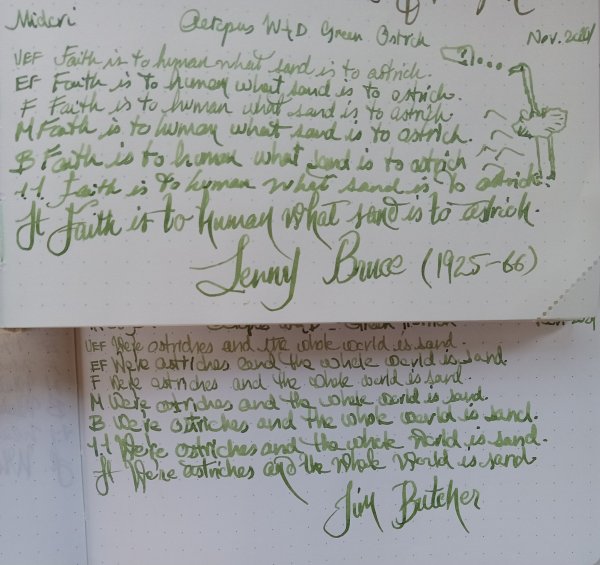 Midori Octopus W+D Green Ostrich Nov. 2024
UEF Faith is to human what sand is to ostrich.
EF Faith is to human what sand is to ostrich.
F Faith is to human what sand is to ostrich.
M Faith is to human what sand is to ostrich.
B Faith is to human what sand is to ostrich
1.1 Faith is to human what sand is to ostrich.
Jt Faith is to human what sand is to ostrich.
Lenny Bruce (1925-66)
UEF We're ostriches and the whole world is sand.
EF We're ostriches and the whole world is sand
F We're ostriches and the whole world is sand.
M We're ostriches and the whole world is sand.
B We're ostriches and the whole world is sand.
1.1 We're ostriches and the whole world is sand.
Jt We're ostriches and the whole world is sand
Jim Butcher